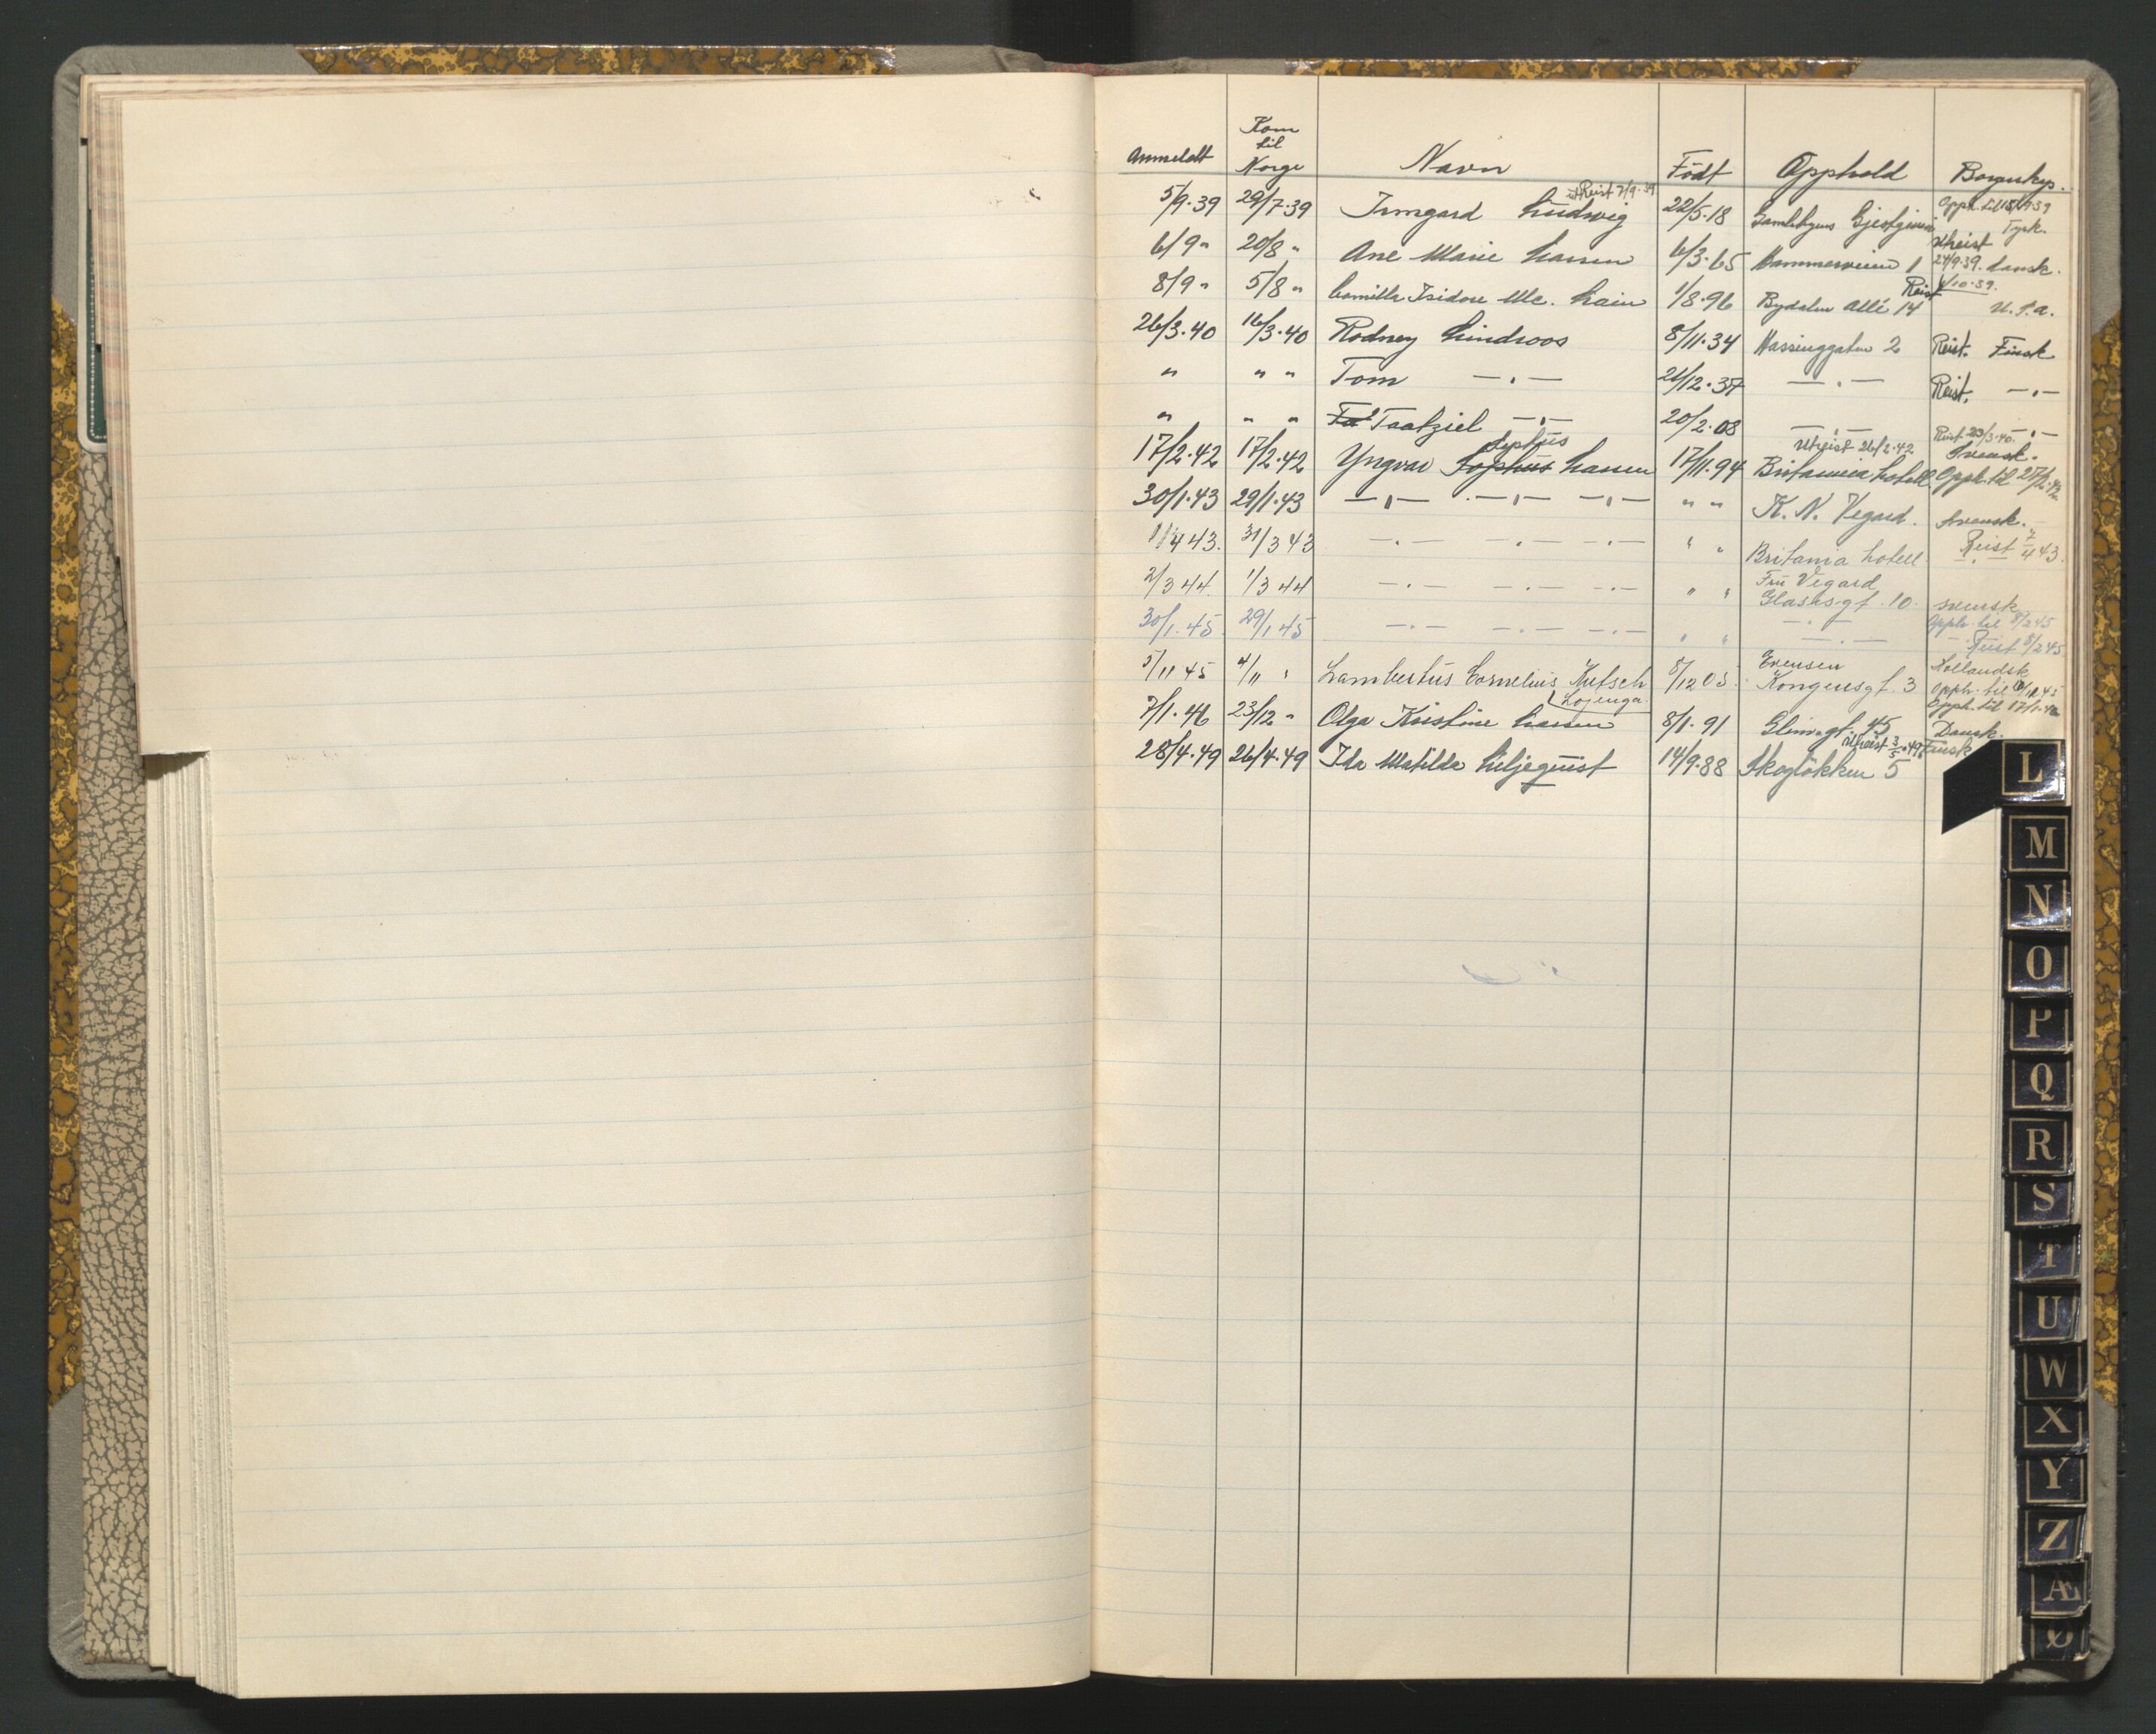 Anmeldt Kom til Norge Navn Født Opphold Borgerskp.
utReist 7/9.39 Opph. til 15/9 39
5/9.39 29/7.39 Irmgard Ludwig 22/5.18 Gamlebyens Gjestgiveri Tysk.
Utreist
6/9 " 20/8 " Ane Marie Larsen 6/3.65 Hammerveien 1 24/9.39. Dansk.
Reist 1/10.39.
8/9 " 5/8 " Camilla Isidore Mc. Lain 1/8.96 Bydalen Allé 14 U.S.A.
26/3.40 16/3.40 Rodney Lindroos 8/11.34 Nassinggaten 2 Reist. Finsk
" " " Tom — " — 21/12.37 — " — Reist. — " —
" " " Taatziel — " — 20/2.08 — " — Reist 23/3.40. — " —
Sophus Utreist 26/2.42 Svensk.
17/2.42 17/2.42 Yngvar Sophus Larsen 17/11.94 Britannia hotell Opph. til 27/2.42
30/1.43 29/1.43 — " — — " — — " — " " K. N. Vegard. Svensk.
1/4 43. 31/3 43 — " — — " — — " — " " Britania hotell Reist 7/4 43.
Fru Vegard
2/3 44. 1/3 44 — " — — " — — " — " " Glassgt. 10. svensk
Opph. til 8/2 45
30/1. 45 29/1 45 — " — — " — — " — " " — " — Reist 8/2 45
Evensen Hollandsk
5/11 45 4/11 " Lambertus Cornelius Hutsch 8/12 05. Kongensgt. 3 Opph. til
Lojenga. Opph. til 17/1.46
7/1.46 23/12 " Olga Kristine Larsen 8/1.91 Glemmgt 45 Dansk.
Utreist 3/5.49 Finsk
28/4.49 26/4.49 Ida Matilda Liljequist 14/9.88 Skogløkken 5
L
M
N
O
P
Q
R
S
T
U
W
X
Y
Z
Æ
Ø